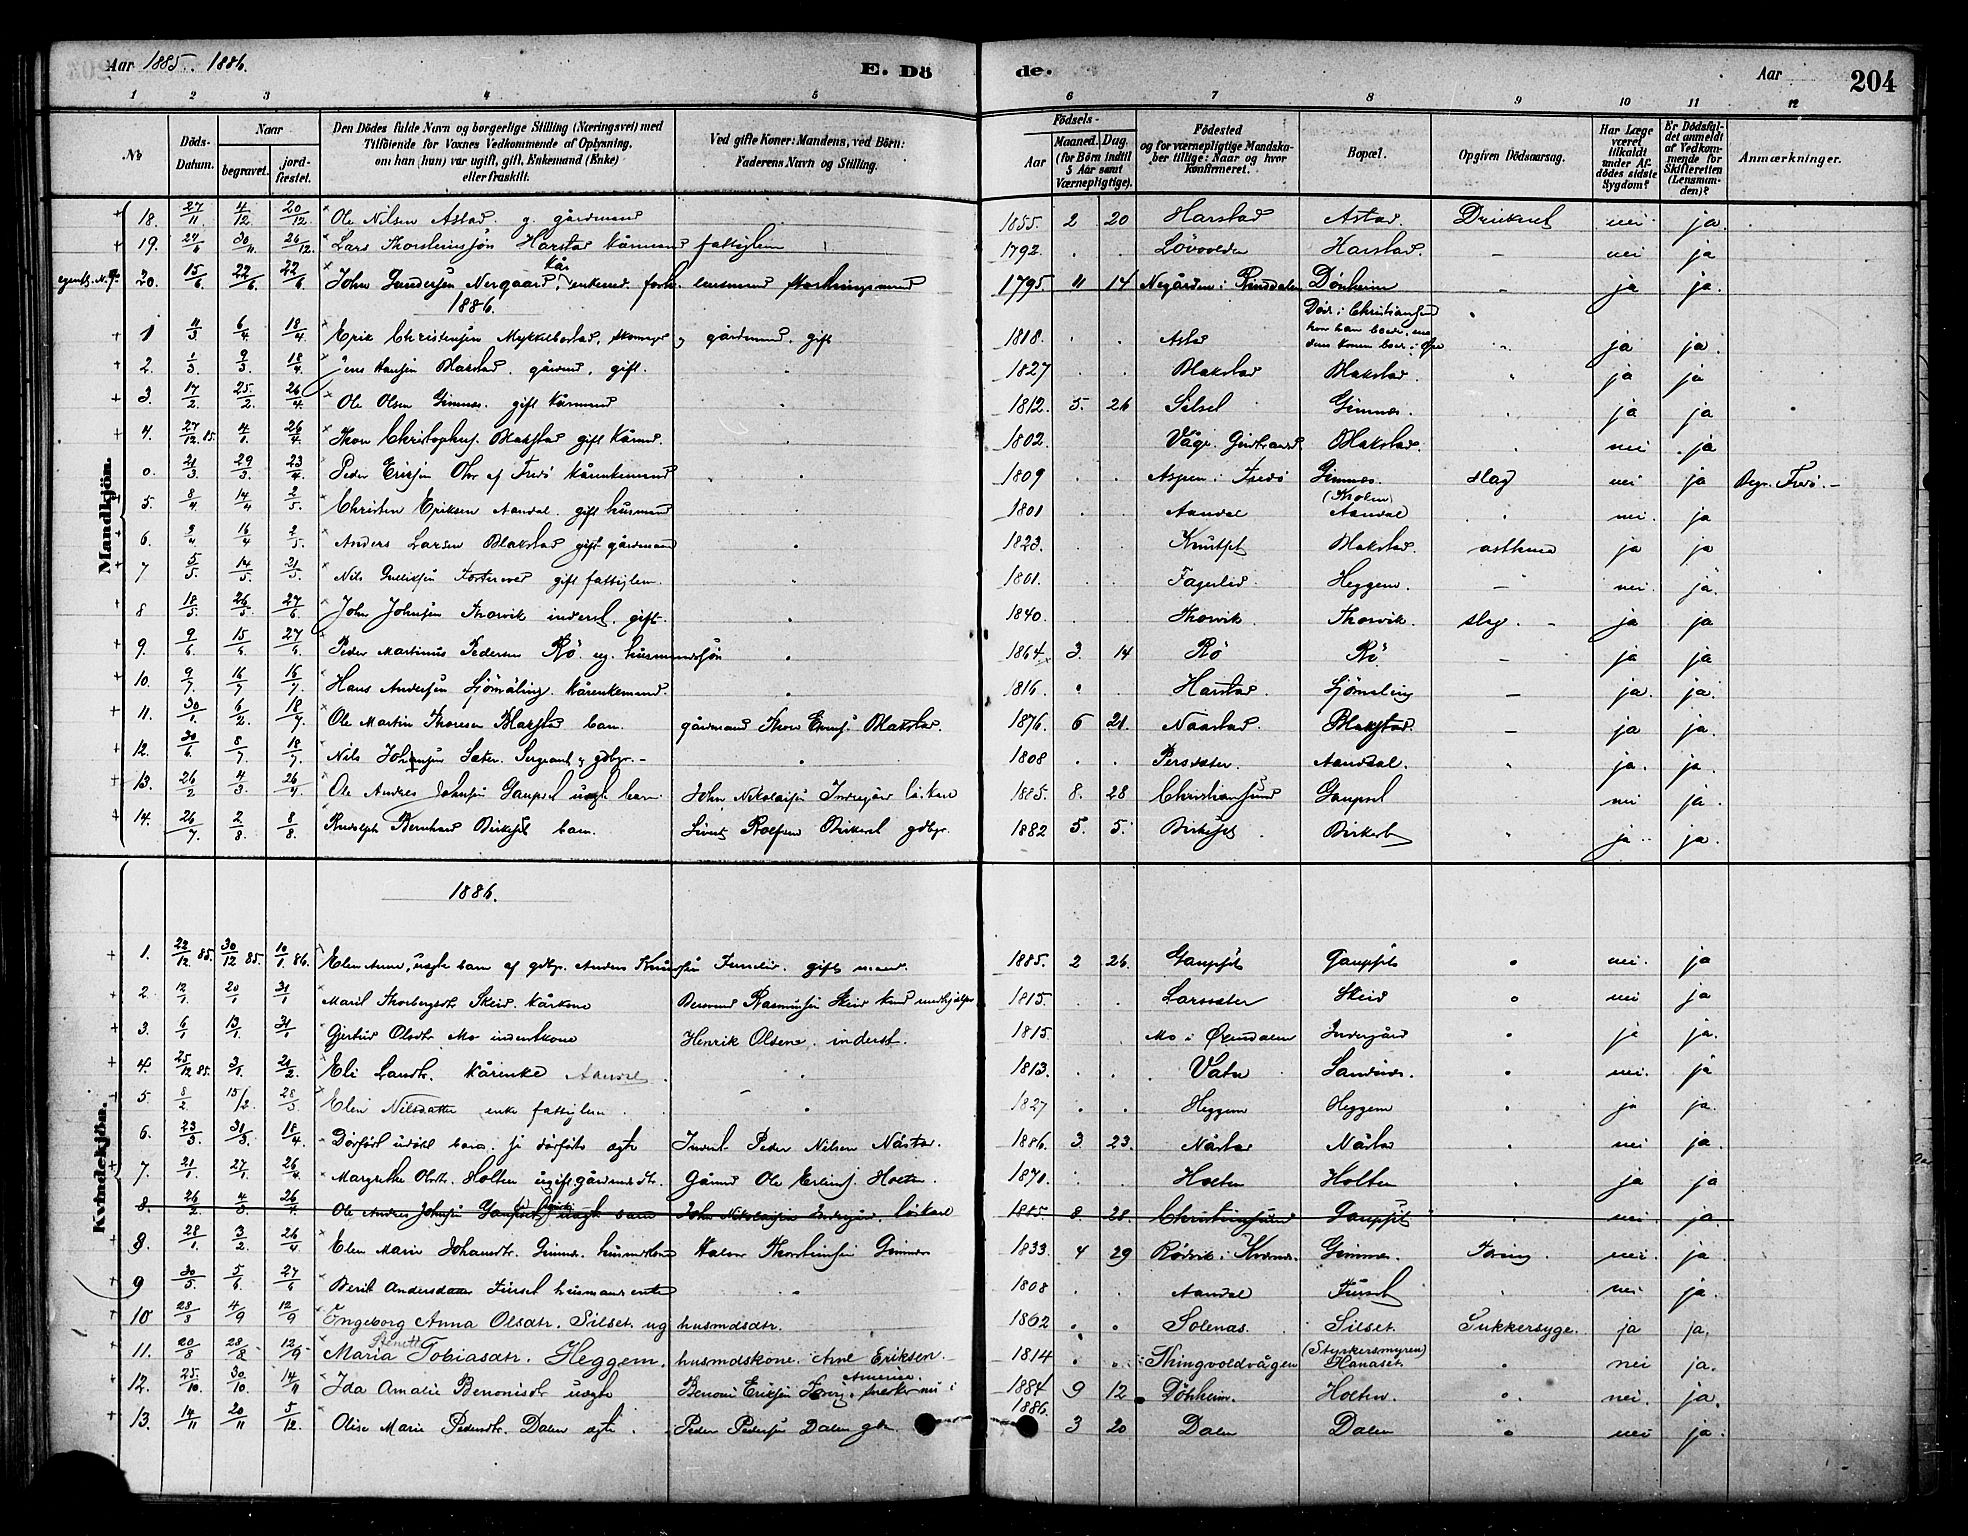 Aar 1885. 1886.
E. Dö
de.
Aar
204
1 2 3 4 5 6 7 8 9 10 11 12
No
Döds-Datum.
Naar
begravet.
jordfæstet.
Den Dödes fulde Navn og borgerlige Stilling (Næringsvei) med Tilföiende for Voxnes Vedkommende af Oplysning, om han (hun) var ugift, gift, Enkemand (Enke) eller fraskilt.
Ved gifte Koner: Mandens, ved Börn: Faderens Navn og Stilling.
Födsels-
Aar
Maaned. Dag.
(for Börn indtil 5 Aar samt Værnepligtige).
Födested
og for værnepligtige Mandskaber tillige: Naar og hvor Konfirmeret.
Bopæl.
Opgiven Dödsaarsag.
Har Læge været tilkaldt under Afdödes sidste Sygdom?
Er Dödsfaldet anmeldt af Vedkommende for Skifteretten (Lensmanden)?
Anmærkninger.
Mandkjön.
18. 27/11 4/12 20/12 Ole Nilsen Astad g. gårdmand 1855. 2 20 Harstad Astad. Druknet nei ja.
19. 30/11 26/12 Lars Thorsteinsjön Harstad kårmand fattiglem 1792. Harstad. nei ja
20. 15/6 22/6 22/6 John Gundersen Nergaard, kår enkemd. forh. lensmand storthingsmand 1795. 11 14 Negården i Rinddalen Dönheim ja ja.
1886.
1 11/3 6/4 18/4 Erik Christensen Mykkelbostad, skomager og gårdmand. gift 1818. Astad Död i Christiansund hvor han boede, ja ja.
2. 1/3 9/3 18/4 Jens Hansen Blakstad. gårdmd, gift. 1827 Blakstad Blakstad. ja ja
3. 17/2 25/2 26/4 Ole Olsen Gimnæs. gift kårmand 1812. 5. 26 Silset Gimnæs. ja ja
4. 27/12 85. 4/1 26/4 Thore Christophers. Blakstad gift kårmd. 1802. Våge Gudbrands Blakstad nei ja
0. 21/3 29/3 23/4 Peder Eriksen Ohr af Fredö kårenkemand 1809 Aspen i Fredö Gimnæs. (Tholm) slag nei ja Begr. Fredö. -
5. 8/4 14/4 2/5 Christen Eriksen Aandal gift husmand 1801 Aandal Aandal nei. ja
6. 16/4 2/5 Anders Larsen Blakstad gift gårdmand 1823. Knutset Blakstad. asthma ja ja
7 5/5 14/5 21/5 Nils Gulliksen Fostervol gift fattiglem. 1801. Fagerlid Heggem. nei. ja.
8 18/5 26/5 27/6 John Johnsen Thorvik inderst. gift. 1840. Thorvik. Thorvik. slag. ja ja
9. 9/6 15/6 27/6 Peder Martinus Pedersen Rö. ug. husmandssön 1864. 3. 14 Rö Rö ja ja
10. 9/7 16/7 16/7 Hans Andersen Sjömæling. kårenkemand. 1816. Harstad. Sjömæling ja. ja.
11. 30/1. 6/2 18/7 Ole Martin Thoresen Blakstad barn. gårdmand Thore Blakstad. 1876. 6 21. Naastad. Blakstad. ja ja.
12. 30/6. 8/7 18/7. Nils Johansen Sæter. Sergeant, gdbgr. - 1808 Persæter. Aandal. ja. ja.
13. 26/2 4/3 26/4 Ole Andreas Johnsen Gaupset uægte barn. John Nikolaisen Indregård löskarl 1885. 8. 28 Christiansund Gaupset nei ja.
14. 26/7 2/8 8/8 Rudolph Bernhard Birkeset barn. Sivert Rolfsen Birkeset gdbgr. 1882 5. 5. Birkeset. Birkeset ja ja.
Kvindekjön.
1886.
1. 22/12 85. 30/12 85. 10/1. 86. Elen Anna, uægte barn af gdbgr. Anders Knutsen gift mand. 1885. 2 26. Gaupset Gaupset. nei. ja
2. 12/1 20/1 31/1 Marit Thorbergsdtr. Skeid. kårkone Rasmussen Skeid 1815. Larssæter Skeid nei ja
3. 6/1 13/1 31/1 Gjertrud Olsdtr. Mo inderstkone Henrik Olsen. inderst. 1815. Mo i Öxendalen Indregård ja ja.
4. 25/12 85. 3/1. 21/2. Eli Larsdtr. kårenke Aandal 1813. Vatn Sandnes. nei. ja
5. 8/2 15/2 28/3 Elen Nilsdatter enke fattiglem 1827 Heggem Heggem ja ja.
6. 23/3. 31/3. 18/4 Dödfödt udöbt barn. pige dödfödt ægte Inderst Peder Nilsen Nåstad. 1886. 3. 23. Nåstad Nåstad nei ja.
7. 21/1. 27/1. 26/4 Margrethe Olsdtr. Holten ugift gårdmandsdtr. Gårmd Ole Holten. 1870. Holten Holten ja ja
8. 26/2 4/3 26/4. Ole Andreas Johnsen Gaupset uægte barn John Nikolaisen Indregård. löskarl 1885 8. 28. Christiansund Gaupset nei. ja.
8. 28/1. 3/2 26/4 Elen Marie Johansdtr. Gimnæs. husmandskone Halvor Thorsteinsen Gimnæs 1833. 4 29 Rödvik i Kværnæs. Gimnæs. Tæring. nei. ja
9 30/5 5/6 27/6 Berit Andersdatter Furset husmandsenke 1808 Aandal Furset nei ja.
10 28/8 4/9 12/9 Ingeborg Anna Olsdtr. Silset ug husmdsdtr. 1862 Solenas. Silset. Sukkersyge. ja ja.
11. 20/8 28/8 12/9 Maria Tobiasdtr. Heggem, husmdskone. Arnt Eriksen. 1814 Thingvoldvågen (Styrkersmyren) Hanaset. nei ja.
12. 25/10 30/10 14/11 Ida Amalie Benonisdtr uægte Benoni Eriksen snedker nu i Amerika. 1884 9 12 Dönheim. Holten nei. ja.
13. 14/11 20/11 5/12. Olise Marie Pedersdtr. Dalen ægte. Peder Pedersen Dalen gbr. 1886. 3 20 Dalen Dalen nei ja.